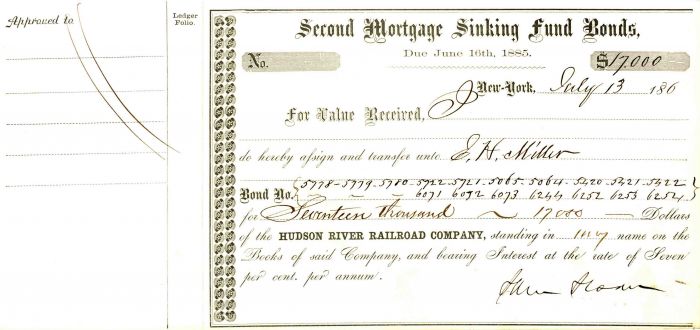 Approved to
Ledger
Folio.
Second Mortgage Sinking Fund Bonds,
Due June 16th, 1885.
No.
$17.000
New-York, July 13 186
For Value Received, I
do hereby assign and transfer unto E. H. Miller
Bond No. 5778-5779-5780-5722-5721-5065-5064-5420-5421-5422
6071 6092 6073 6244 6252 6253 6254
for Seventeen thousand ~ 17000 — Dollars
of the HUDSON RIVER RAILROAD COMPANY, standing in my name on the
Books of said Company, and bearing Interest at the rate of Seven
per cent. per annum.